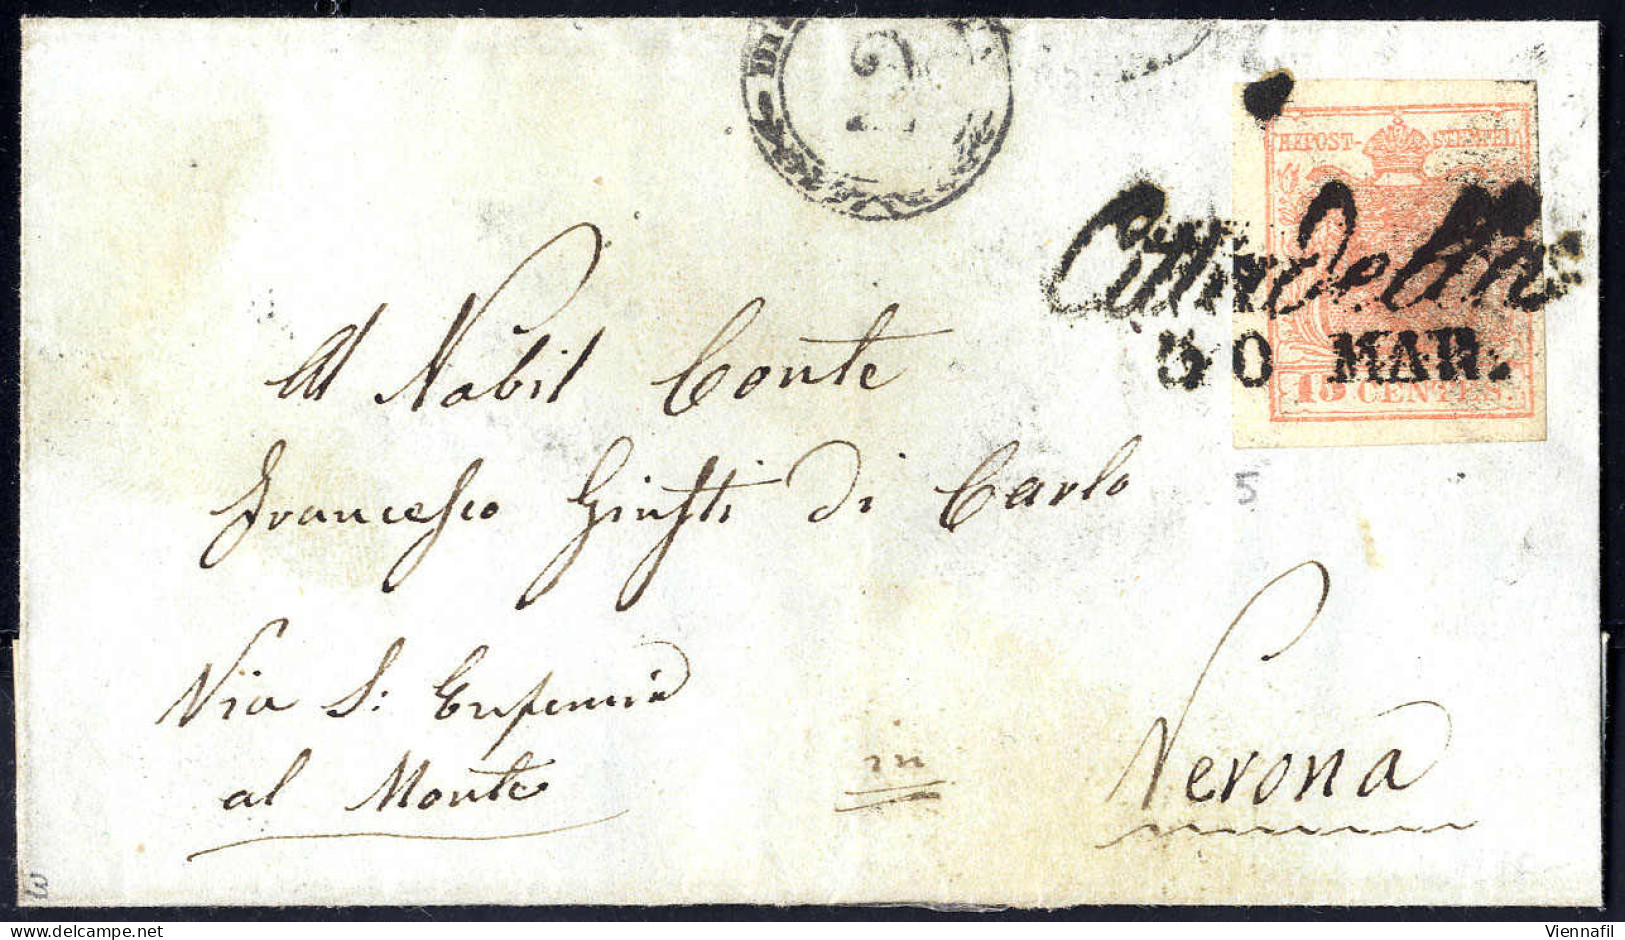 DI
KKPOST-STEMPEL
Cittadella
30 MAR.
15 CENTES.
5
Al Nobil Conte
Francesco Giusti di Carlo
Via S: Eufemia
al Monte
in Verona
3
Viennafil